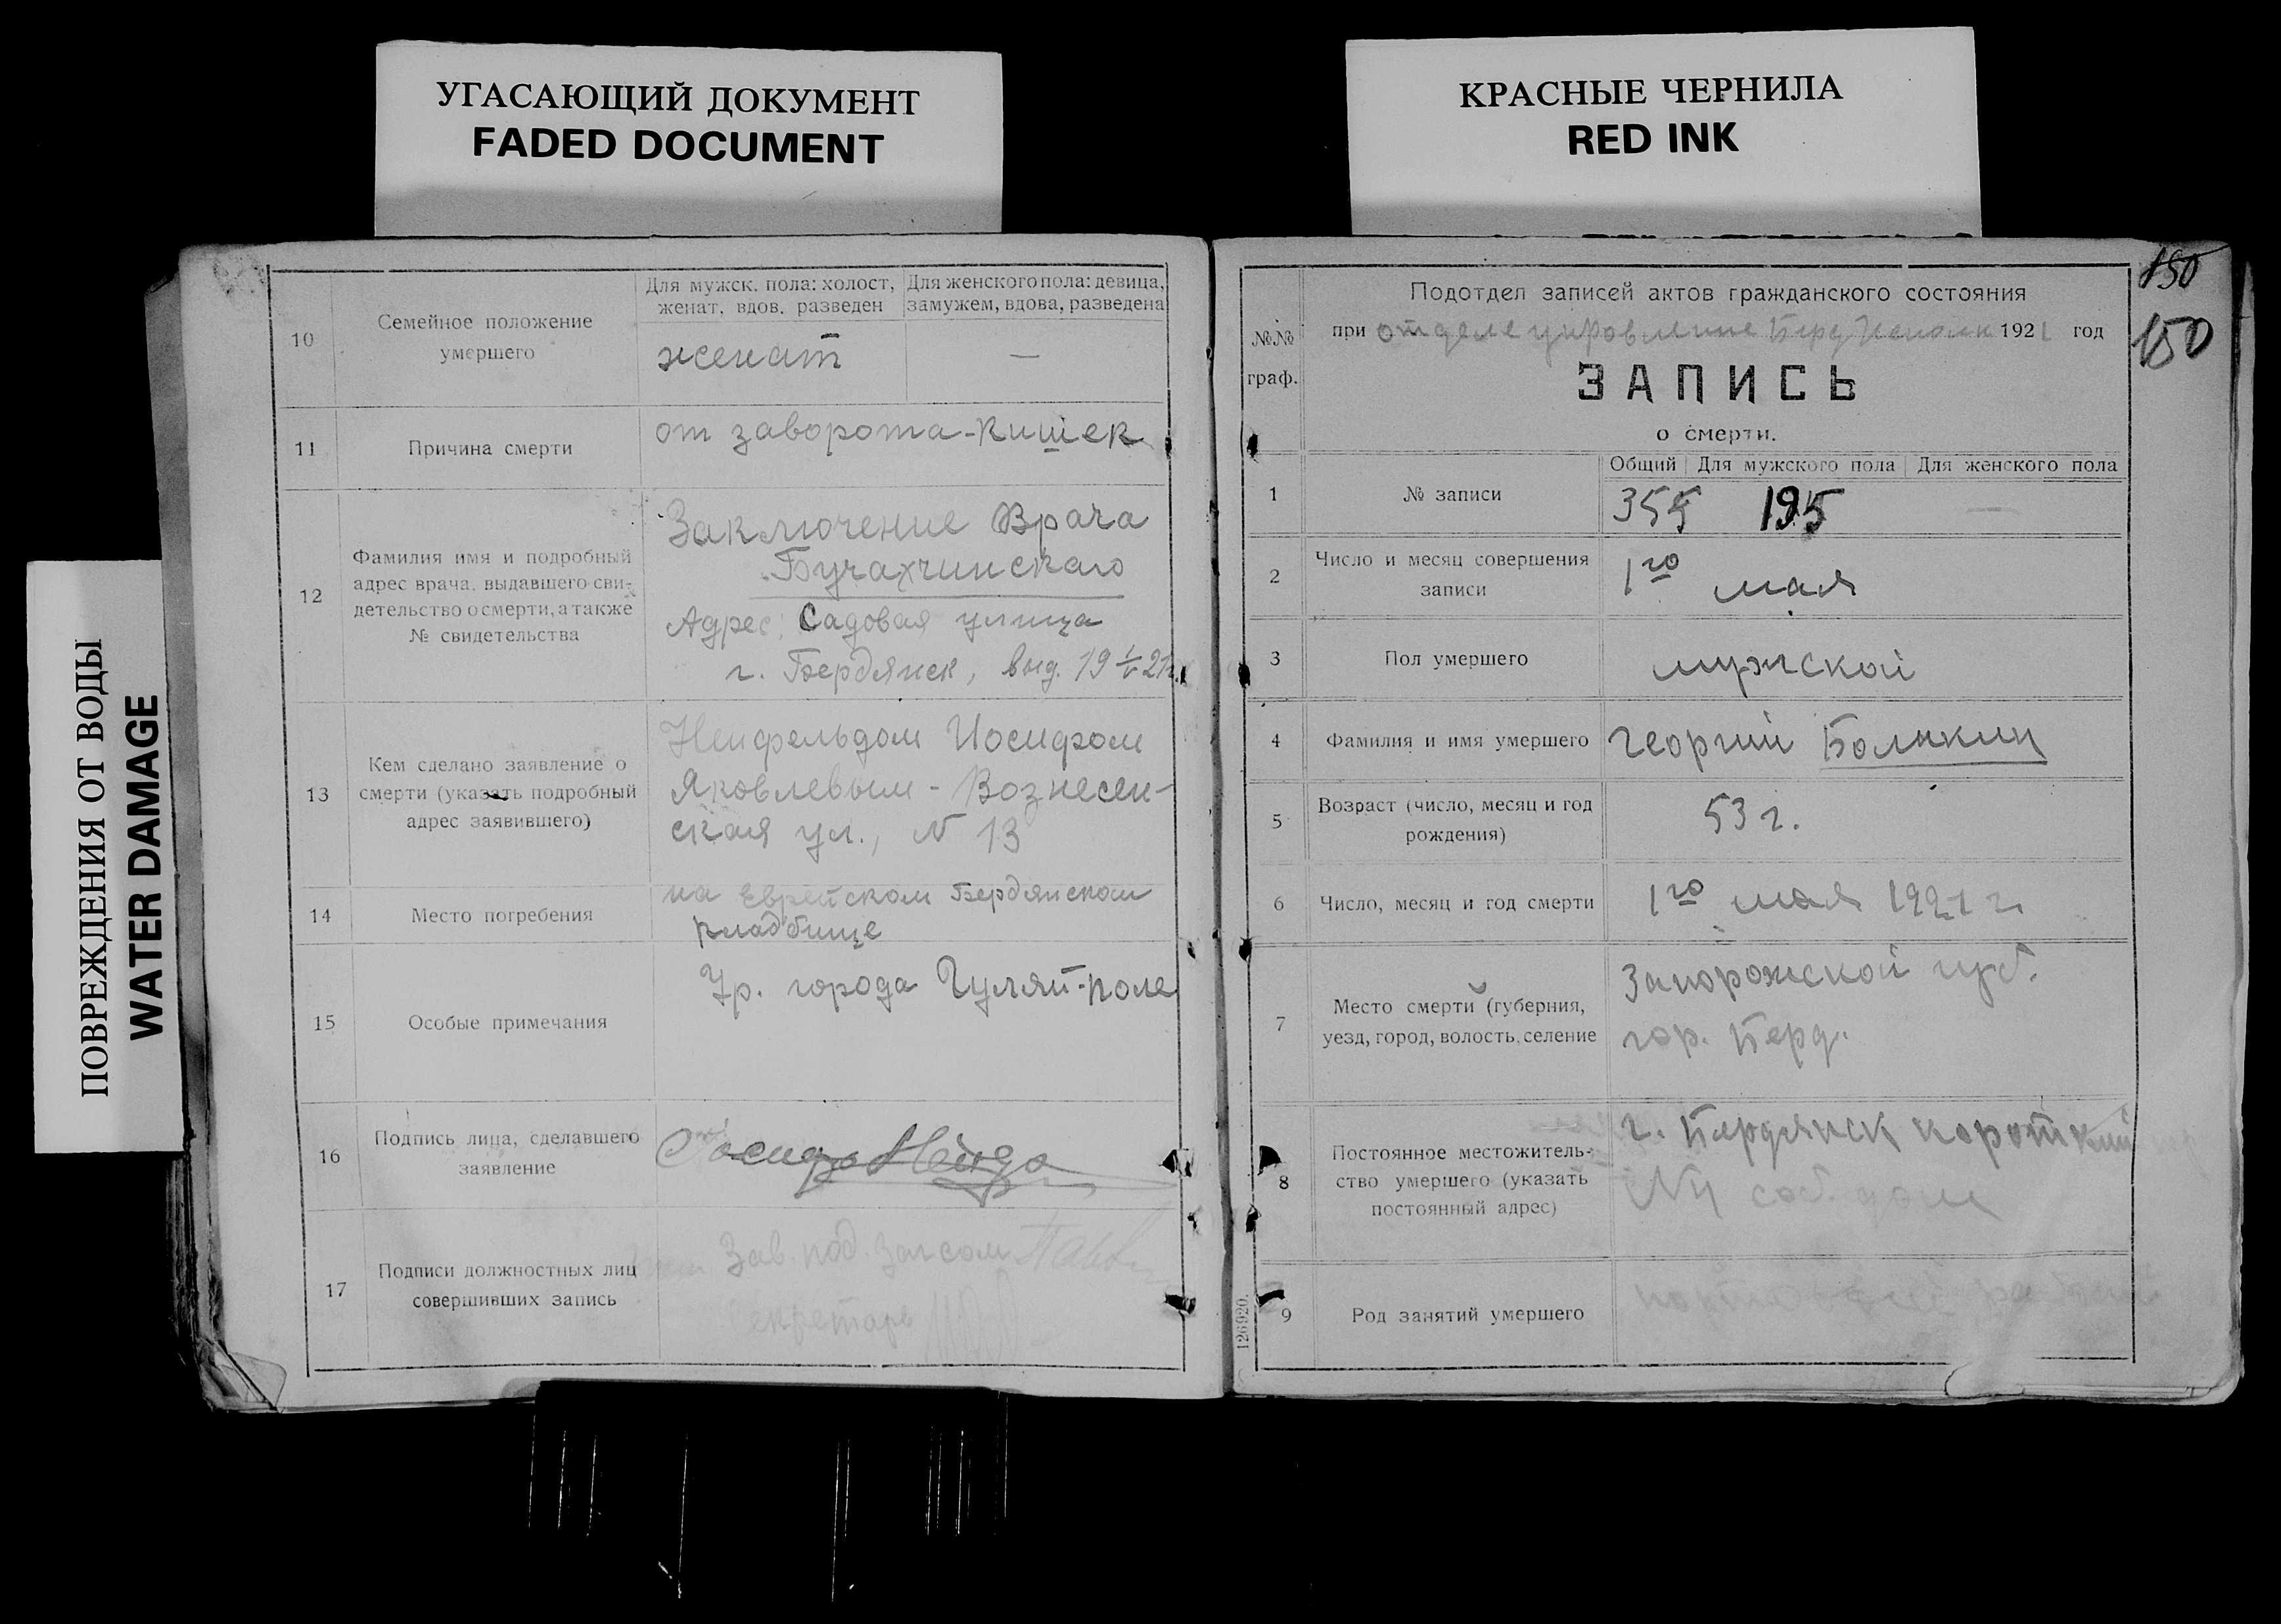 УГАСАЮЩИЙ ДОКУМЕНТ
FADED DOCUMENT
КРАСНЫЕ ЧЕРНИЛА
RED INK
ПОВРЕЖДЕНИЯ ОТ ВОДЫ
WATER DAMAGE
10
Семейное положение
умершего
Для мужск. пола: холост,
женат, вдов, разведен
Для женского пола: девица,
замужем, вдова, разведена
женат
—
11
Причина смерти
от заворота-кишек
12
Фамилия имя и подробный
адрес врача, выдавшего сви-
детельство о смерти, а также
№ свидетельства
Заключение Врача
Бучахчинскаго
Адрес: Садовая улица
г. Бердянск, выд. 19 1/V 21г.
13
Кем сделано заявление о
смерти (указать подробный
адрес заявившего)
Нейфельдом Иосифом
Яковлевым - Вознесен-
ская ул., N 13
14
Место погребения
на Еврейском Бердянском
кладбище
15
Особые примечания
Гр. города Гуляй-поле
16
Подпись лица, сделавшего
заявление
17
Подписи должностных лиц
совершивших запись
Зав. под. Загсом
Секретарь
150
150
№№
граф.
Подотдел записей актов гражданского состояния
при отделе управление Берд Исполк 1921 год
ЗАПИСЬ
о смерти.
Общий Для мужского пола Для женского пола
1
№ записи
355 195 —
2
Число и месяц совершения
записи
1го мая
3
Пол умершего
мужской
4
Фамилия и имя умершего
Георгий Болыкин
5
Возраст (число, месяц и год
рождения)
53 г.
6
Число, месяц и год смерти
1го мая 1921 г.
7
Место смерти (губерния,
уезд, город, волость, селение
Запорожской губ.
гор. Берд.
8
Постоянное местожитель-
ство умершего (указать
постоянный адрес)
г. Бердянск короткий
соб. дом
9
Род занятий умершего
126920.